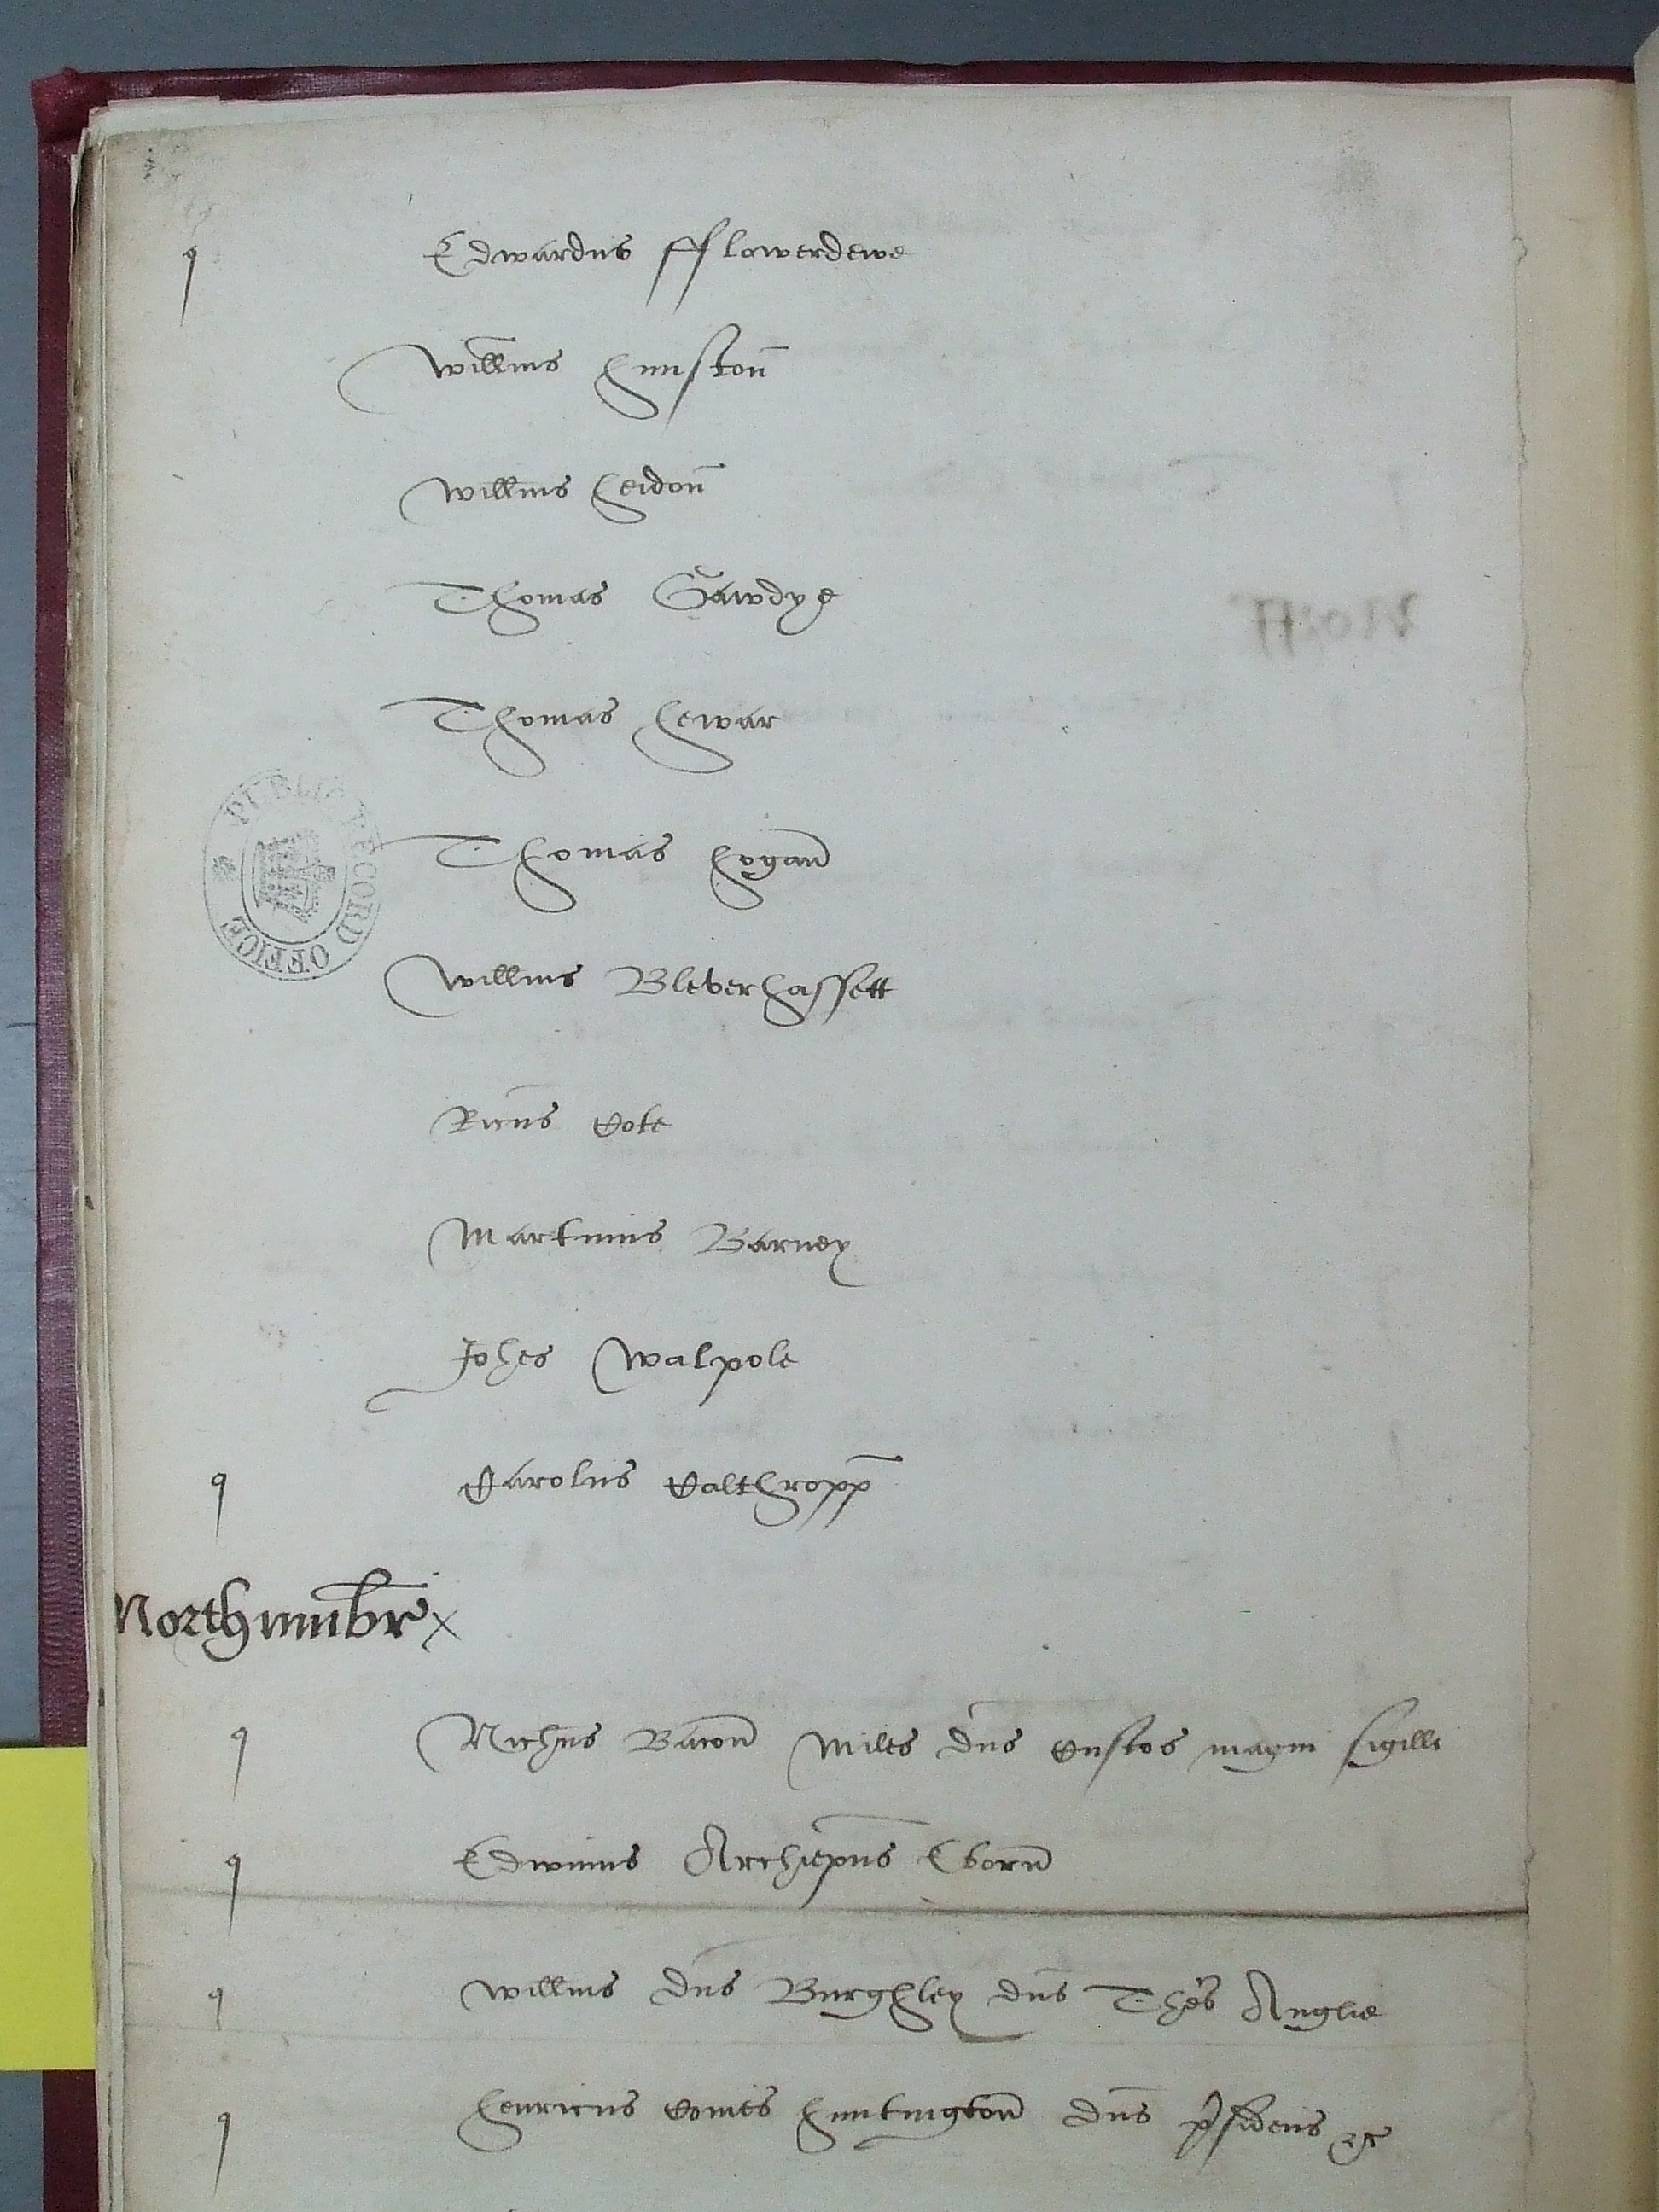 q Edwardus fflowerdewe
Willms Hunston
Willms Heidon
Thomas Gawdye
Thomas Hewar
Thomas Hogan
Willms Bleverhassett
Ricus Cote
Martinus Barney
Johes Walpole
q Carolus Calthropp
PUBLIC RECORD OFFICE
Northumbr x
q Nichus Bacon Miles dns Custos magni sigilli
q Edwinus Archiepus Eboru
q Willms dns Burghley dns Thes Anglie
q Henricus Comes Huntington dns psidens &c